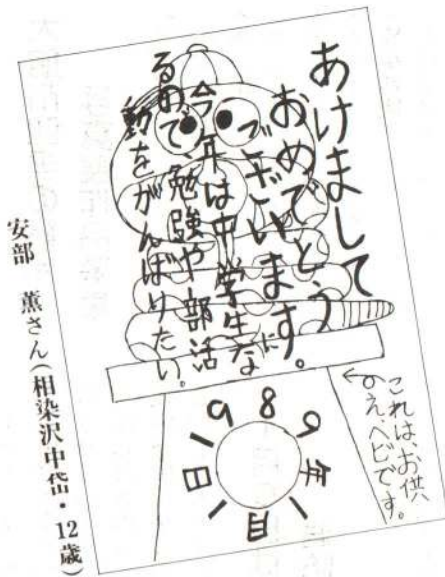 あけまして
おめでとう
ございます。
今年は中学生にな
るので、勉強や部活
動をがんばりたい。
これは、お供
え、ヘビです。
1989年1月1日
安部 薫さん(相染沢中岱・12歳)